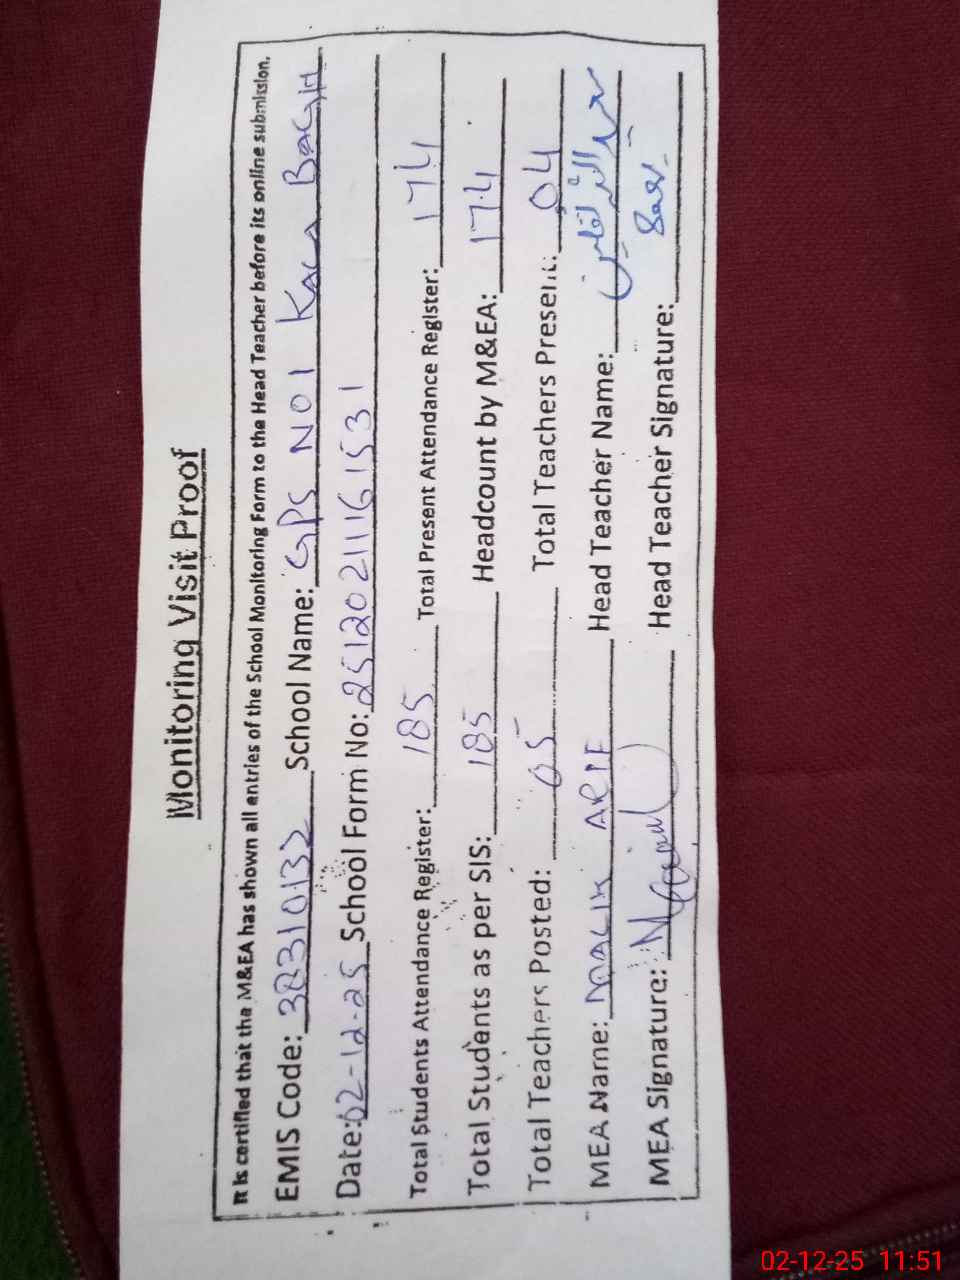 Monitoring Visit Proof
It is certified that the M&EA has shown all entries of the School Monitoring Form to the Head Teacher before its online submission.
EMIS Code: 38310132 School Name: GPS NO1 Kach BAGH
Date: 02-12-25 School Form No: 25120211161531
Total Students Attendance Register: 185 Total Present Attendance Register: 174
Total Students as per SIS: 185 Headcount by M&EA: 174
Total Teachers Posted: 05 Total Teachers Present: 04
MEA Name: MALIK ARIF Head Teacher Name:
MEA Signature: Head Teacher Signature:
02-12-25 11:51